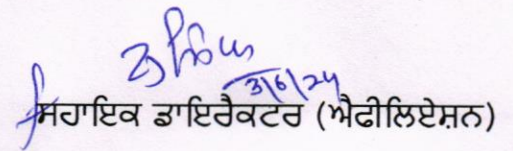 3/6/24
ਸਹਾਇਕ ਡਾਇਰੈਕਟਰ (ਐਫੀਲਿਏਸ਼ਨ)